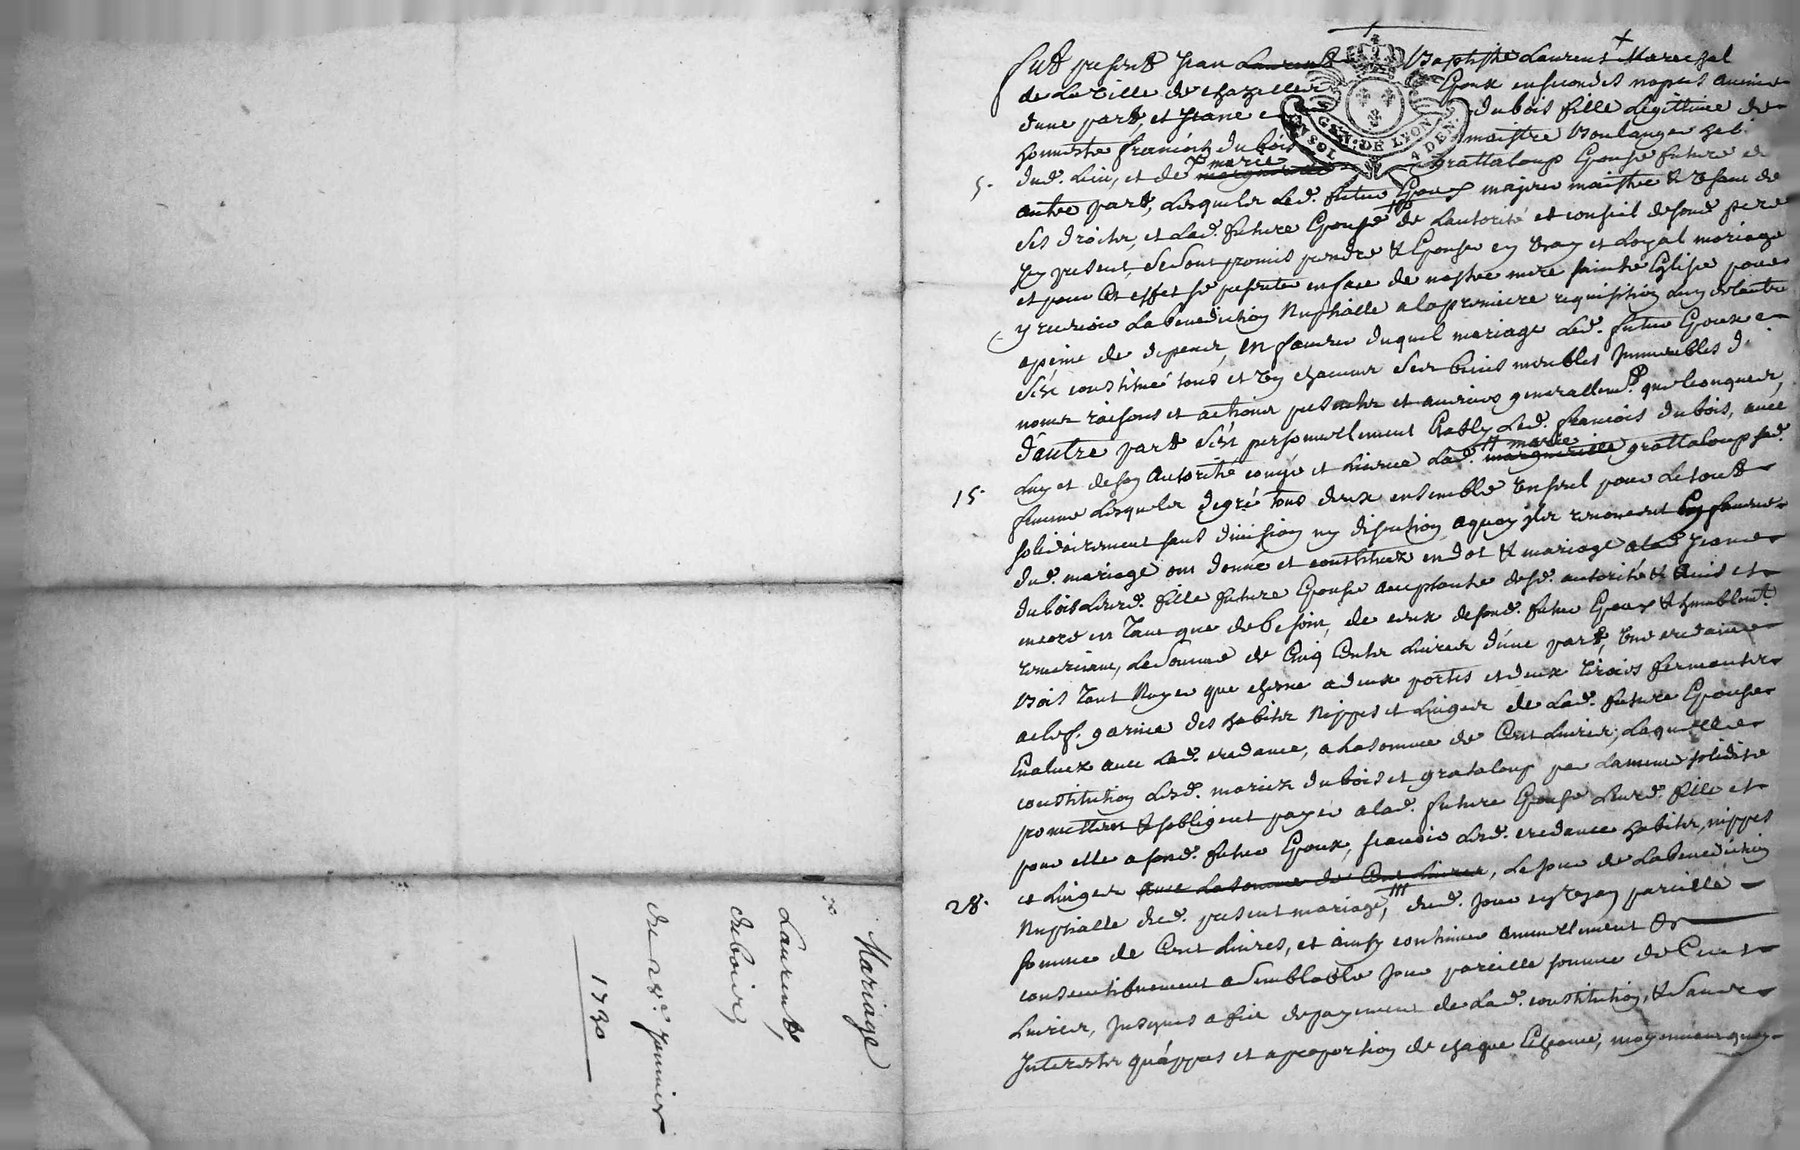 Fut present Jean Laurent Baptiste Laurent Marechal
de La Ville de chazelles Epoux en secondes nopces avenir
dune part, et Jeane dubois fille Legittime de
honneste francois dubois maistre Boulanger hab.
5. dud. Lieu, et de marie marguerite grattaloup Epouse future de
autre part, Lesquels Led. futur Epoux majeur maistre & usant de
ses droits, et Lad. future Epouse de Lautorité et conseil desond. pere
Icy present, se sont promis prendre & Epouser en vray et Loyal mariage
et pour cet effet se presenter en face de nostre mere sainte Eglise pour
y recevoir La benediction Nuptialle a la premiere requisition Luy de Lautre
a peine de depens, en faveur duquel mariage Led. futur Epoux
sest constitué tous et un chacuns ses biens meubles Immeubles
noms raisons et actions presents et avenirs generallem.t quelconques,
d'autre part sest personnellement Estably Led. francois dubois, avec
15. Luy et de son Autorité congé et Licence Lad. marie marguerite grattaloup sad.
femme Lesquels de gré tous deux ensemble un seul pour Le tout
solidairement sans division ny discution, a quoy Ils renoncent En faveur
dud. mariage ont donné et constitué en dot & mariage a lad. Jeanne
dubois Leurd. fille future Epouse acceptante desd. autorité & avis et
encore en tant que de besoin, de ceux desond. futur Epoux & humblem.t
remerciant, La somme de Cinq Cents Livres d'une part, une credance
bois tant Noyer que chesne a deux portes et deux tirois fermants
a clef. garnie des habits Nippes et Linges de Lad. future Epouse
Evaluez avec Lad. credance, a La somme de Cent Livres; Laquelle
constitution Lesd. mariez dubois et grataloup par La mesme solidité
promettent & sobligent payer a lad. future Epouse Leurd. fille et
pour elle a sond. futur Epoux, scavoir Lesd. credance habits, nippes
28. et Linges avec La somme de Cent Livres, Le jour de La benediction
Nuptialle dud. present mariage, dud. Jour en un an pareille
somme de Cent Livres, et ainsy continuer annuellement &
consecutivement a semblable Jour pareille somme de Cent
Livres, Jusques a fin de payement de Lad. constitution, & sans
Interests qu'appres et a proportion de chaque Echeance, moyennant quoy
Mariage
Laurent,
dubois,
du 28e Janvier
1730